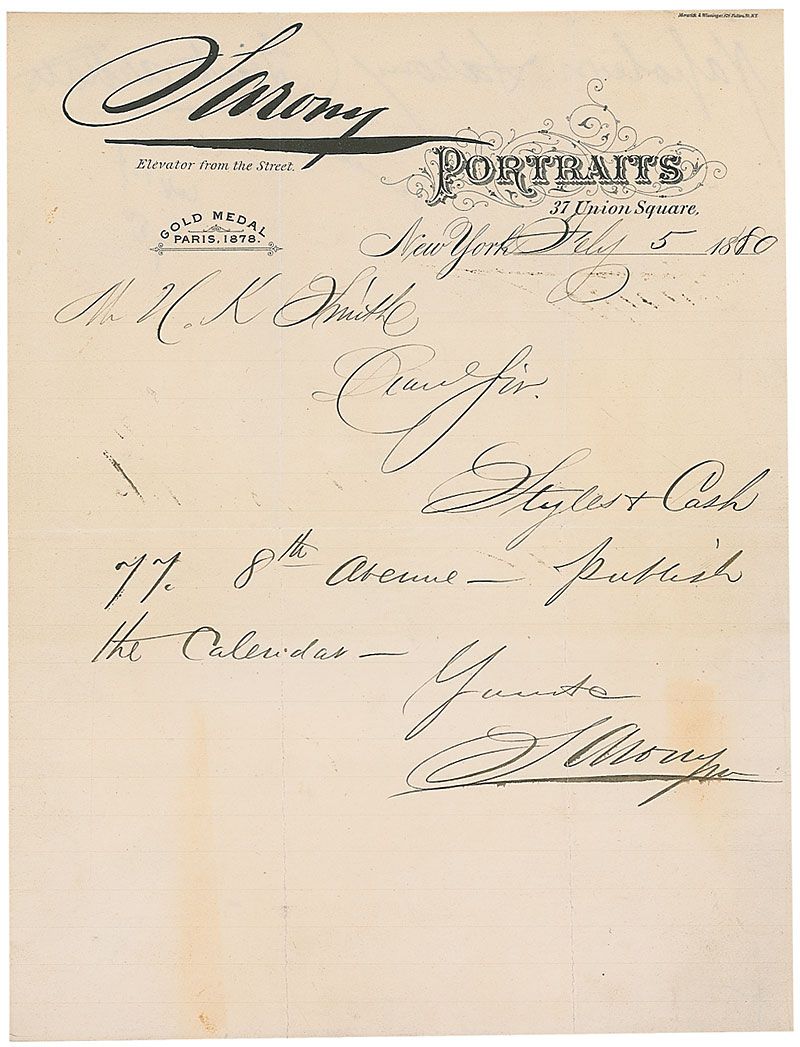 Sarony
Elevator from the Street.
PORTRAITS
37 Union Square.
GOLD MEDAL
PARIS, 1878.
New York Feby 5 1880
Mr H. K Smith
Dear Sir.
Styles & Cash
77. 8th Avenue — publish
the Calendar —
Sarony